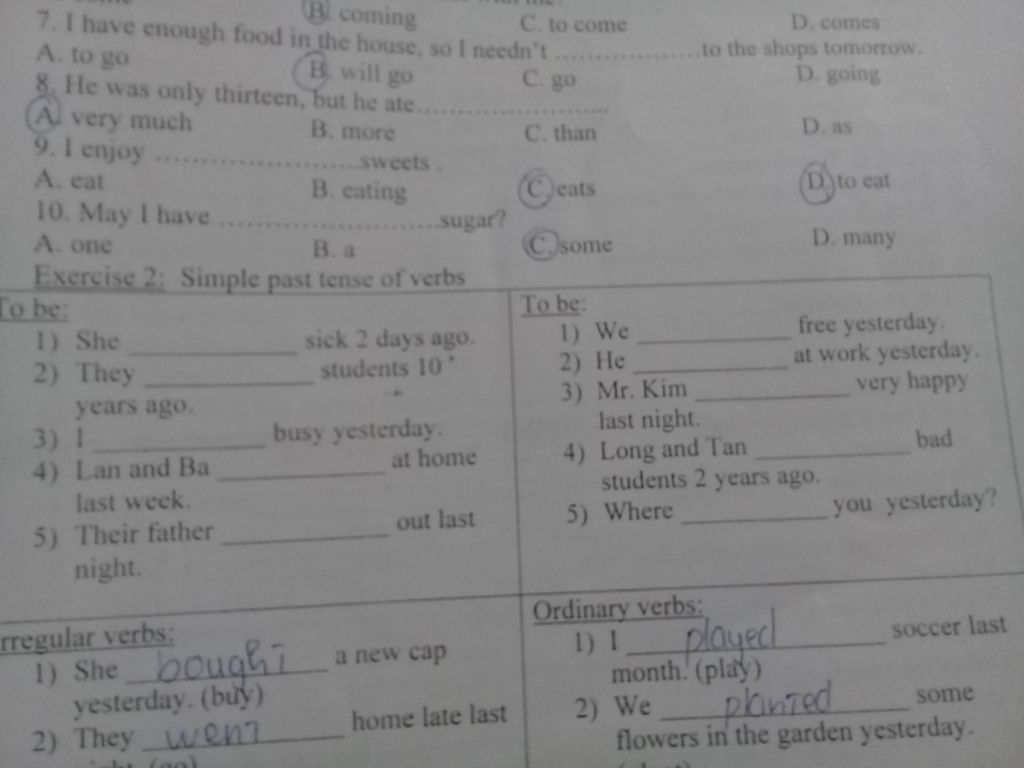 B. coming C. to come D. comes
7. I have enough food in the house, so I needn't ....................to the shops tomorrow.
A. to go B. will go C. go D. going
8. He was only thirteen, but he ate............................
A. very much B. more C. than D. as
9. I enjoy ............................sweets .
A. eat B. eating C. eats D. to eat
10. May I have ..............................sugar?
A. one B. a C. some D. many
Exercise 2: Simple past tense of verbs
To be:
1) She ____________ sick 2 days ago.
2) They ____________ students 10
years ago.
3) I ____________ busy yesterday.
4) Lan and Ba ____________ at home
last week.
5) Their father ____________ out last
night.
To be:
1) We ____________ free yesterday.
2) He ____________ at work yesterday.
3) Mr. Kim ____________ very happy
last night.
4) Long and Tan ____________ bad
students 2 years ago.
5) Where ____________ you yesterday?
rregular verbs:
1) She bought a new cap
yesterday. (buy)
2) They went home late last
Ordinary verbs:
1) I played soccer last
month. (play)
2) We planted some
flowers in the garden yesterday.